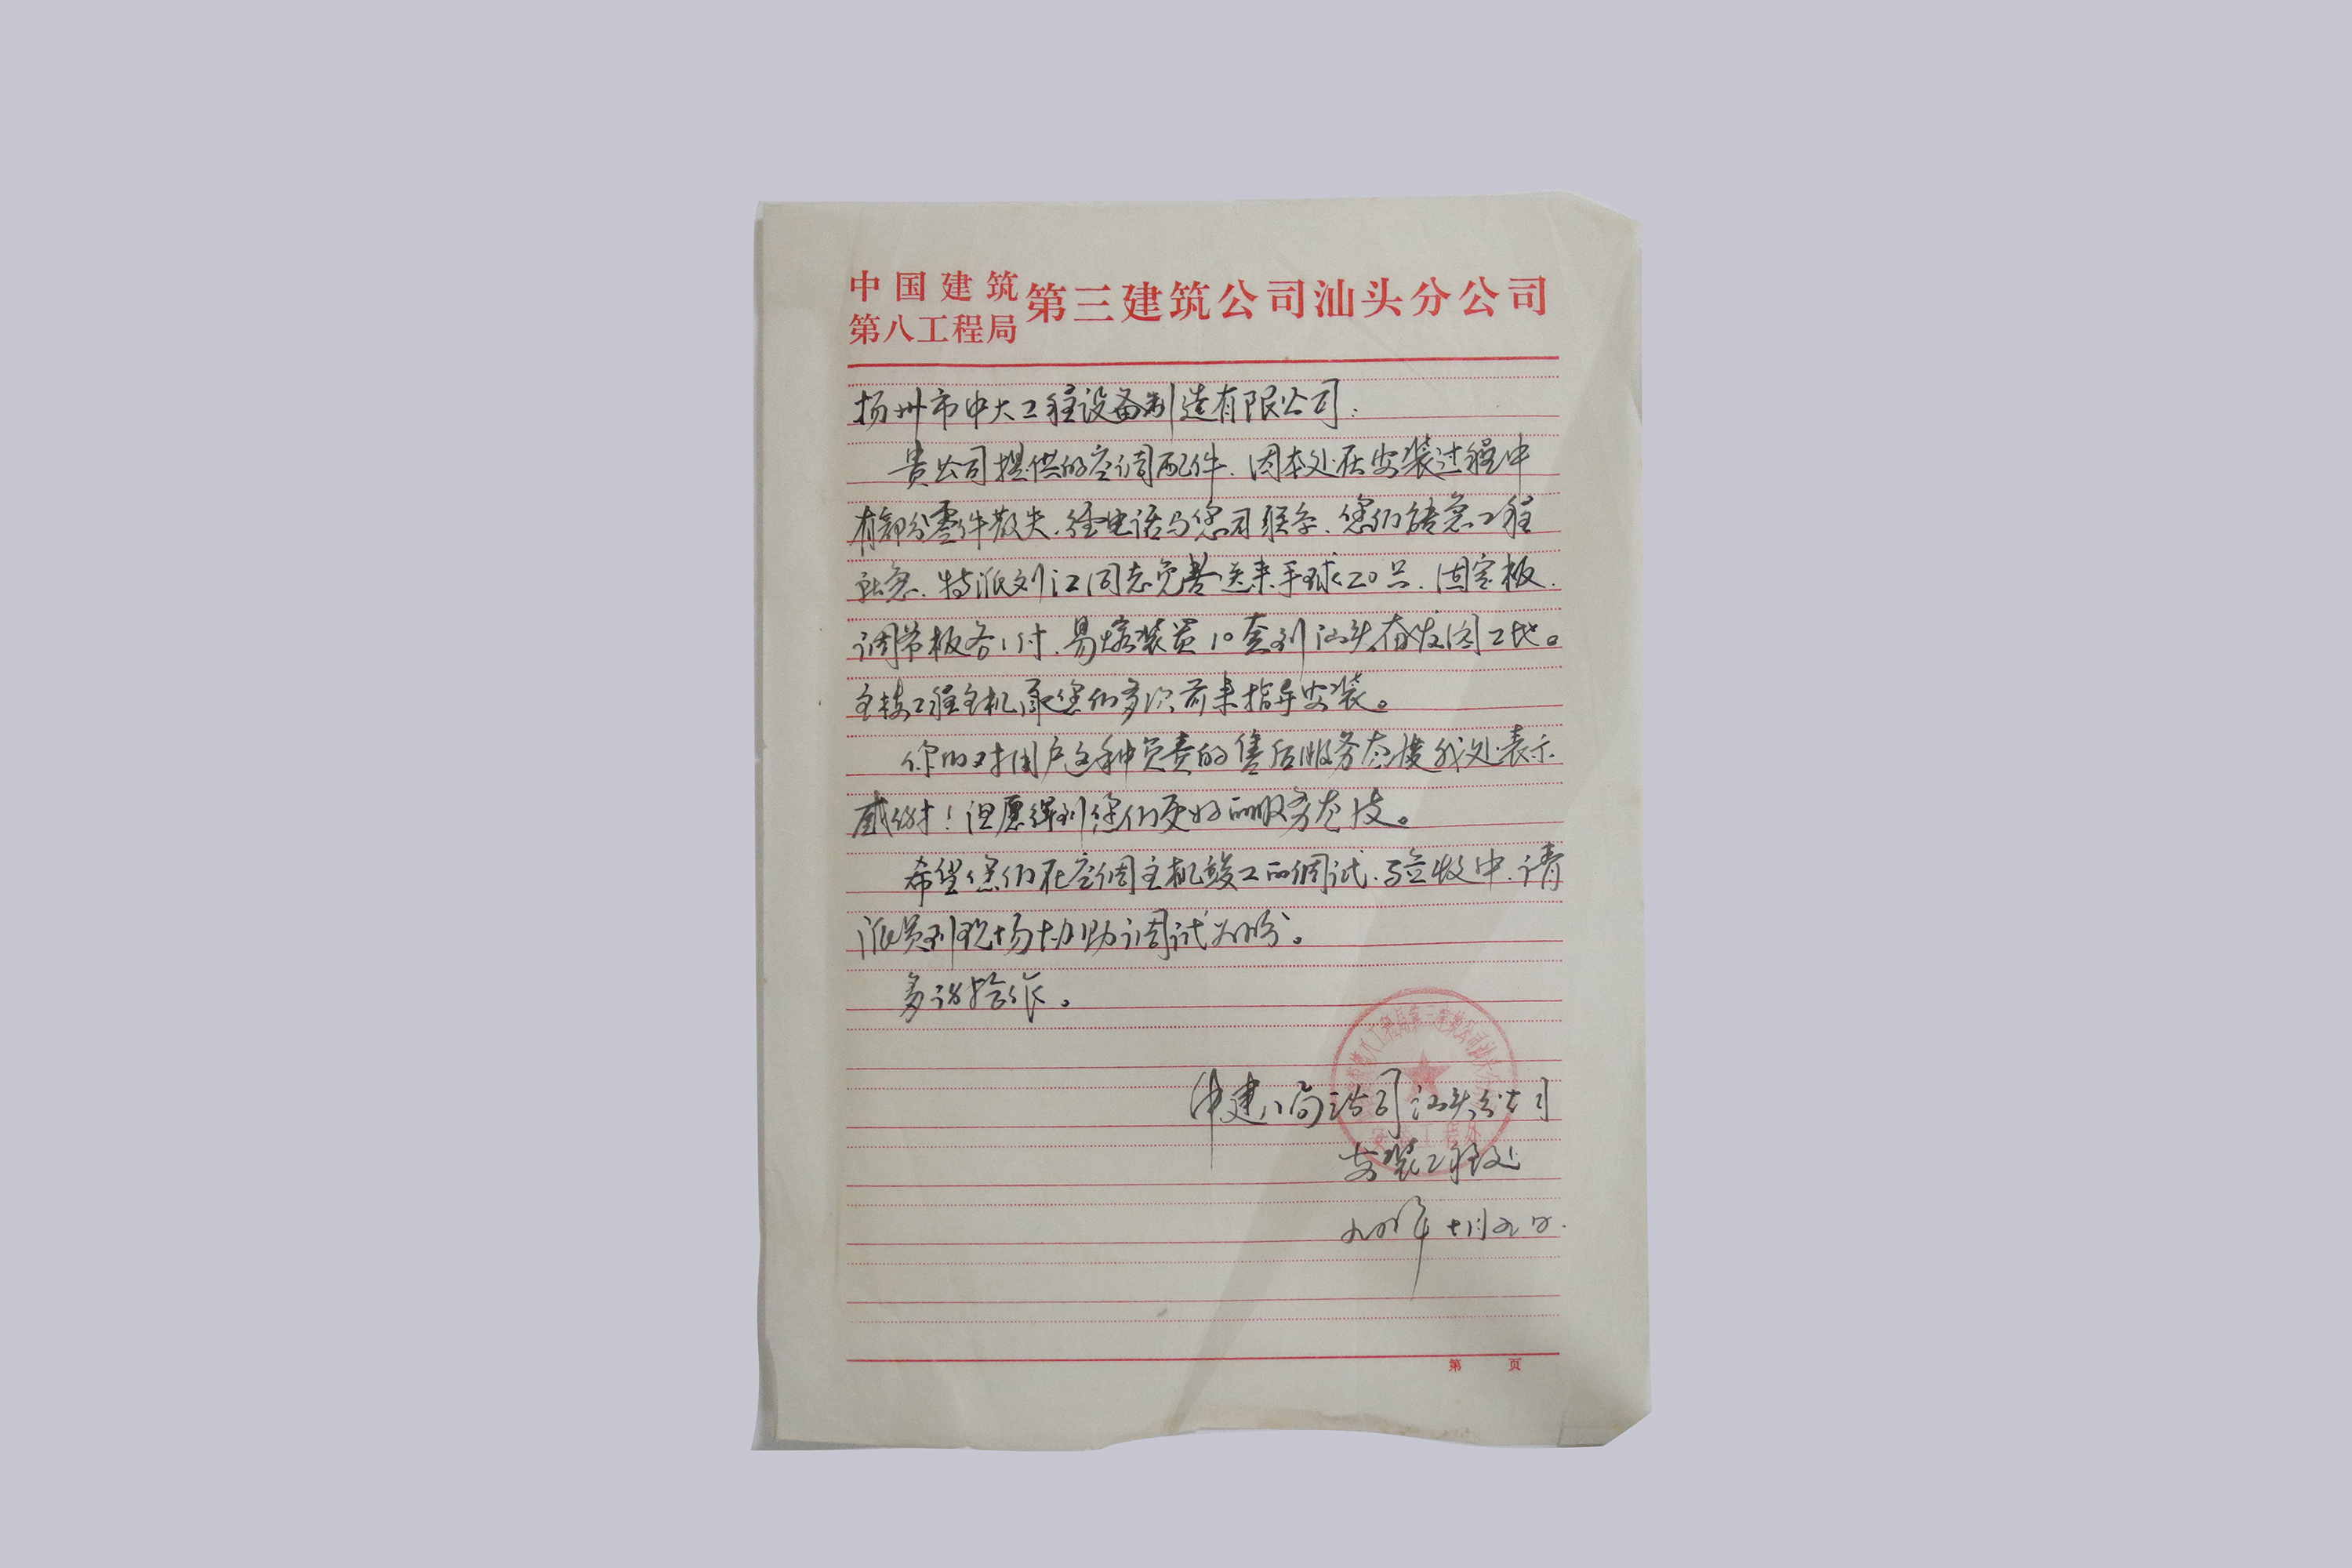 中国建筑
第八工程局
第三建筑公司汕头分公司
扬州市中大工程设备制造有限公司:
贵公司提供的空调配件.因本处在安装过程中
有部分零件散失.经电话与您司联系.您们结急工程
所急.特派刘江同志免费送来手球20只.固定板.
调节板各1付.易熔装置10套到汕头奋发阁工地。
主楼工程主机承您们多次前来指导安装。
你们对用户这种负责的售后服务态度我处表示
感谢!但愿得到您们更好的服务态度。
希望您们在空调主机竣工的调试.验收中.请
派员到现场协助调试为盼。
多谢合作。
中建八局三公司汕头分公司
安装工程处
年十月九日.
安装工程处
第 页